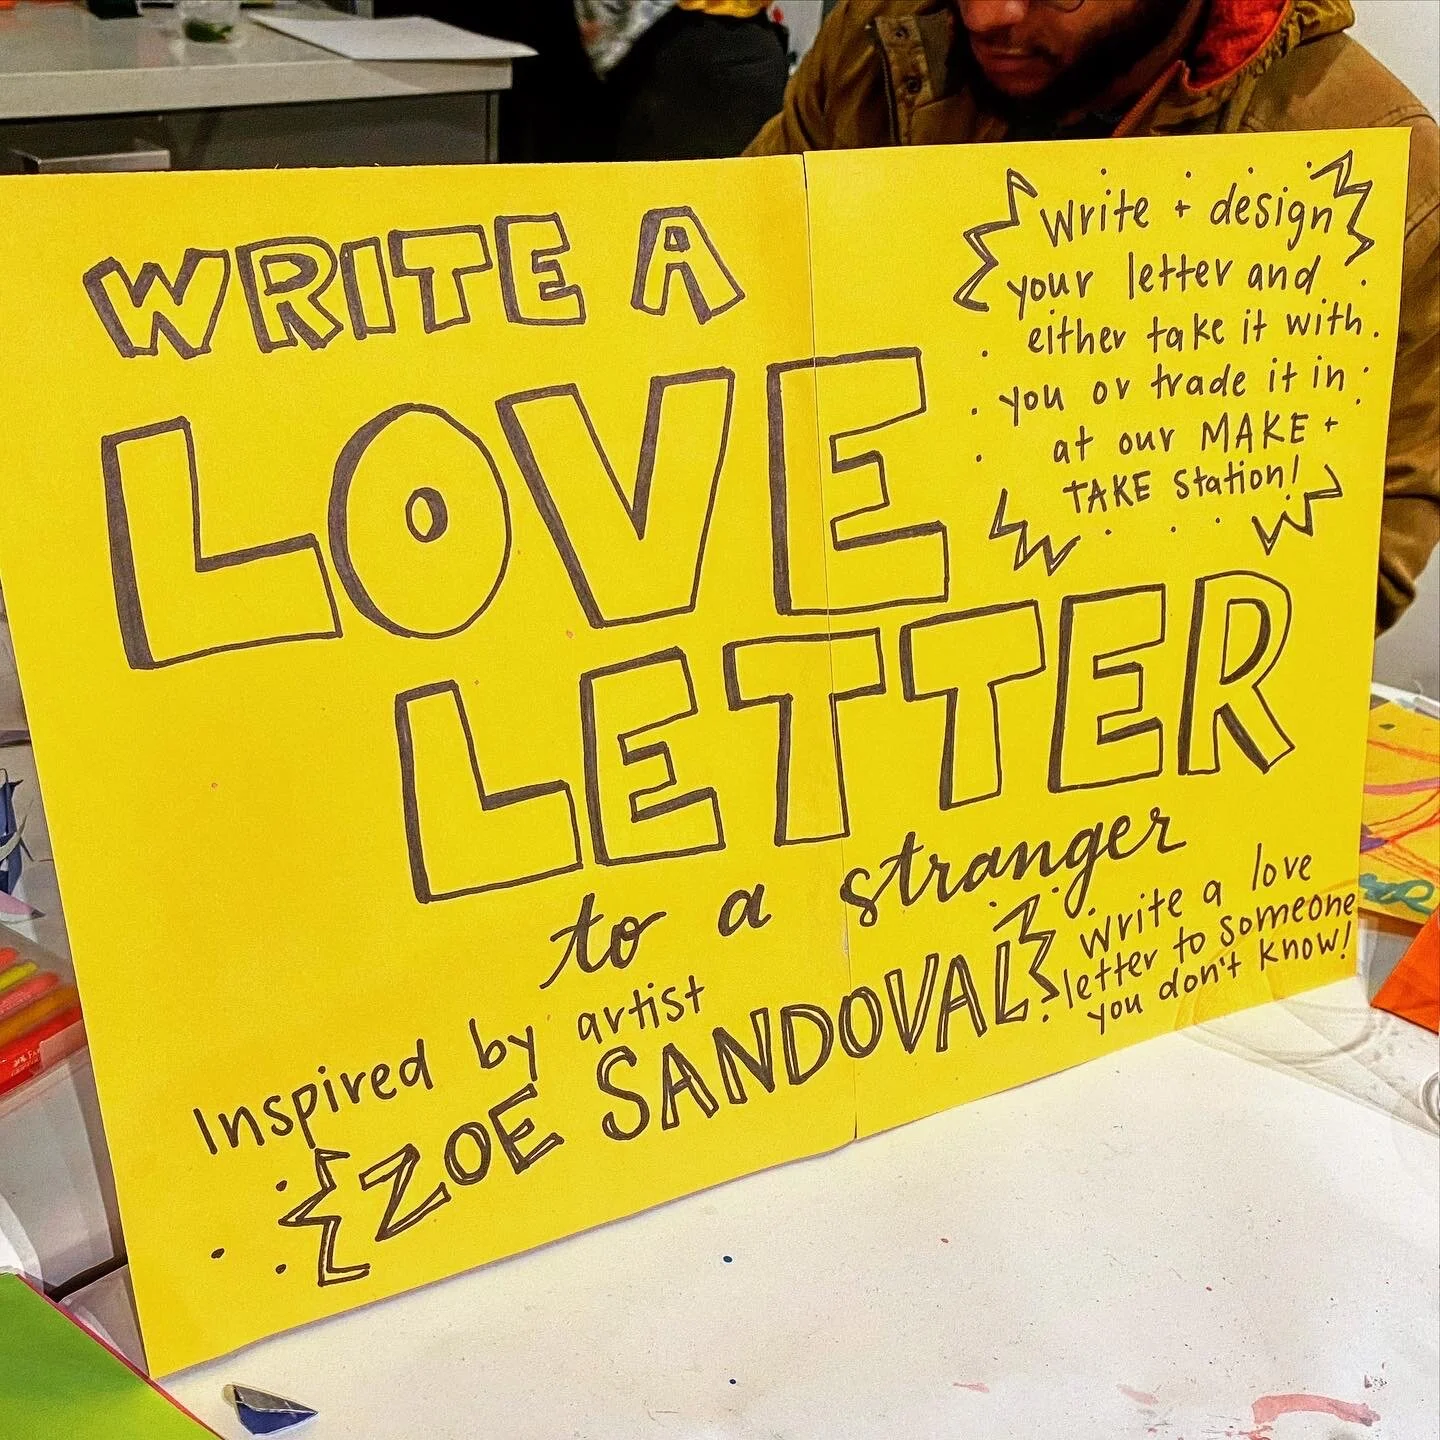 WRITE A
LOVE
LETTER
to a stranger
Inspired by artist
ZOE SANDOVAL
Write + design
your letter and
either take it with
you or trade it in
at our MAKE +
TAKE Station!
Write a love
letter to someone
you don't know!